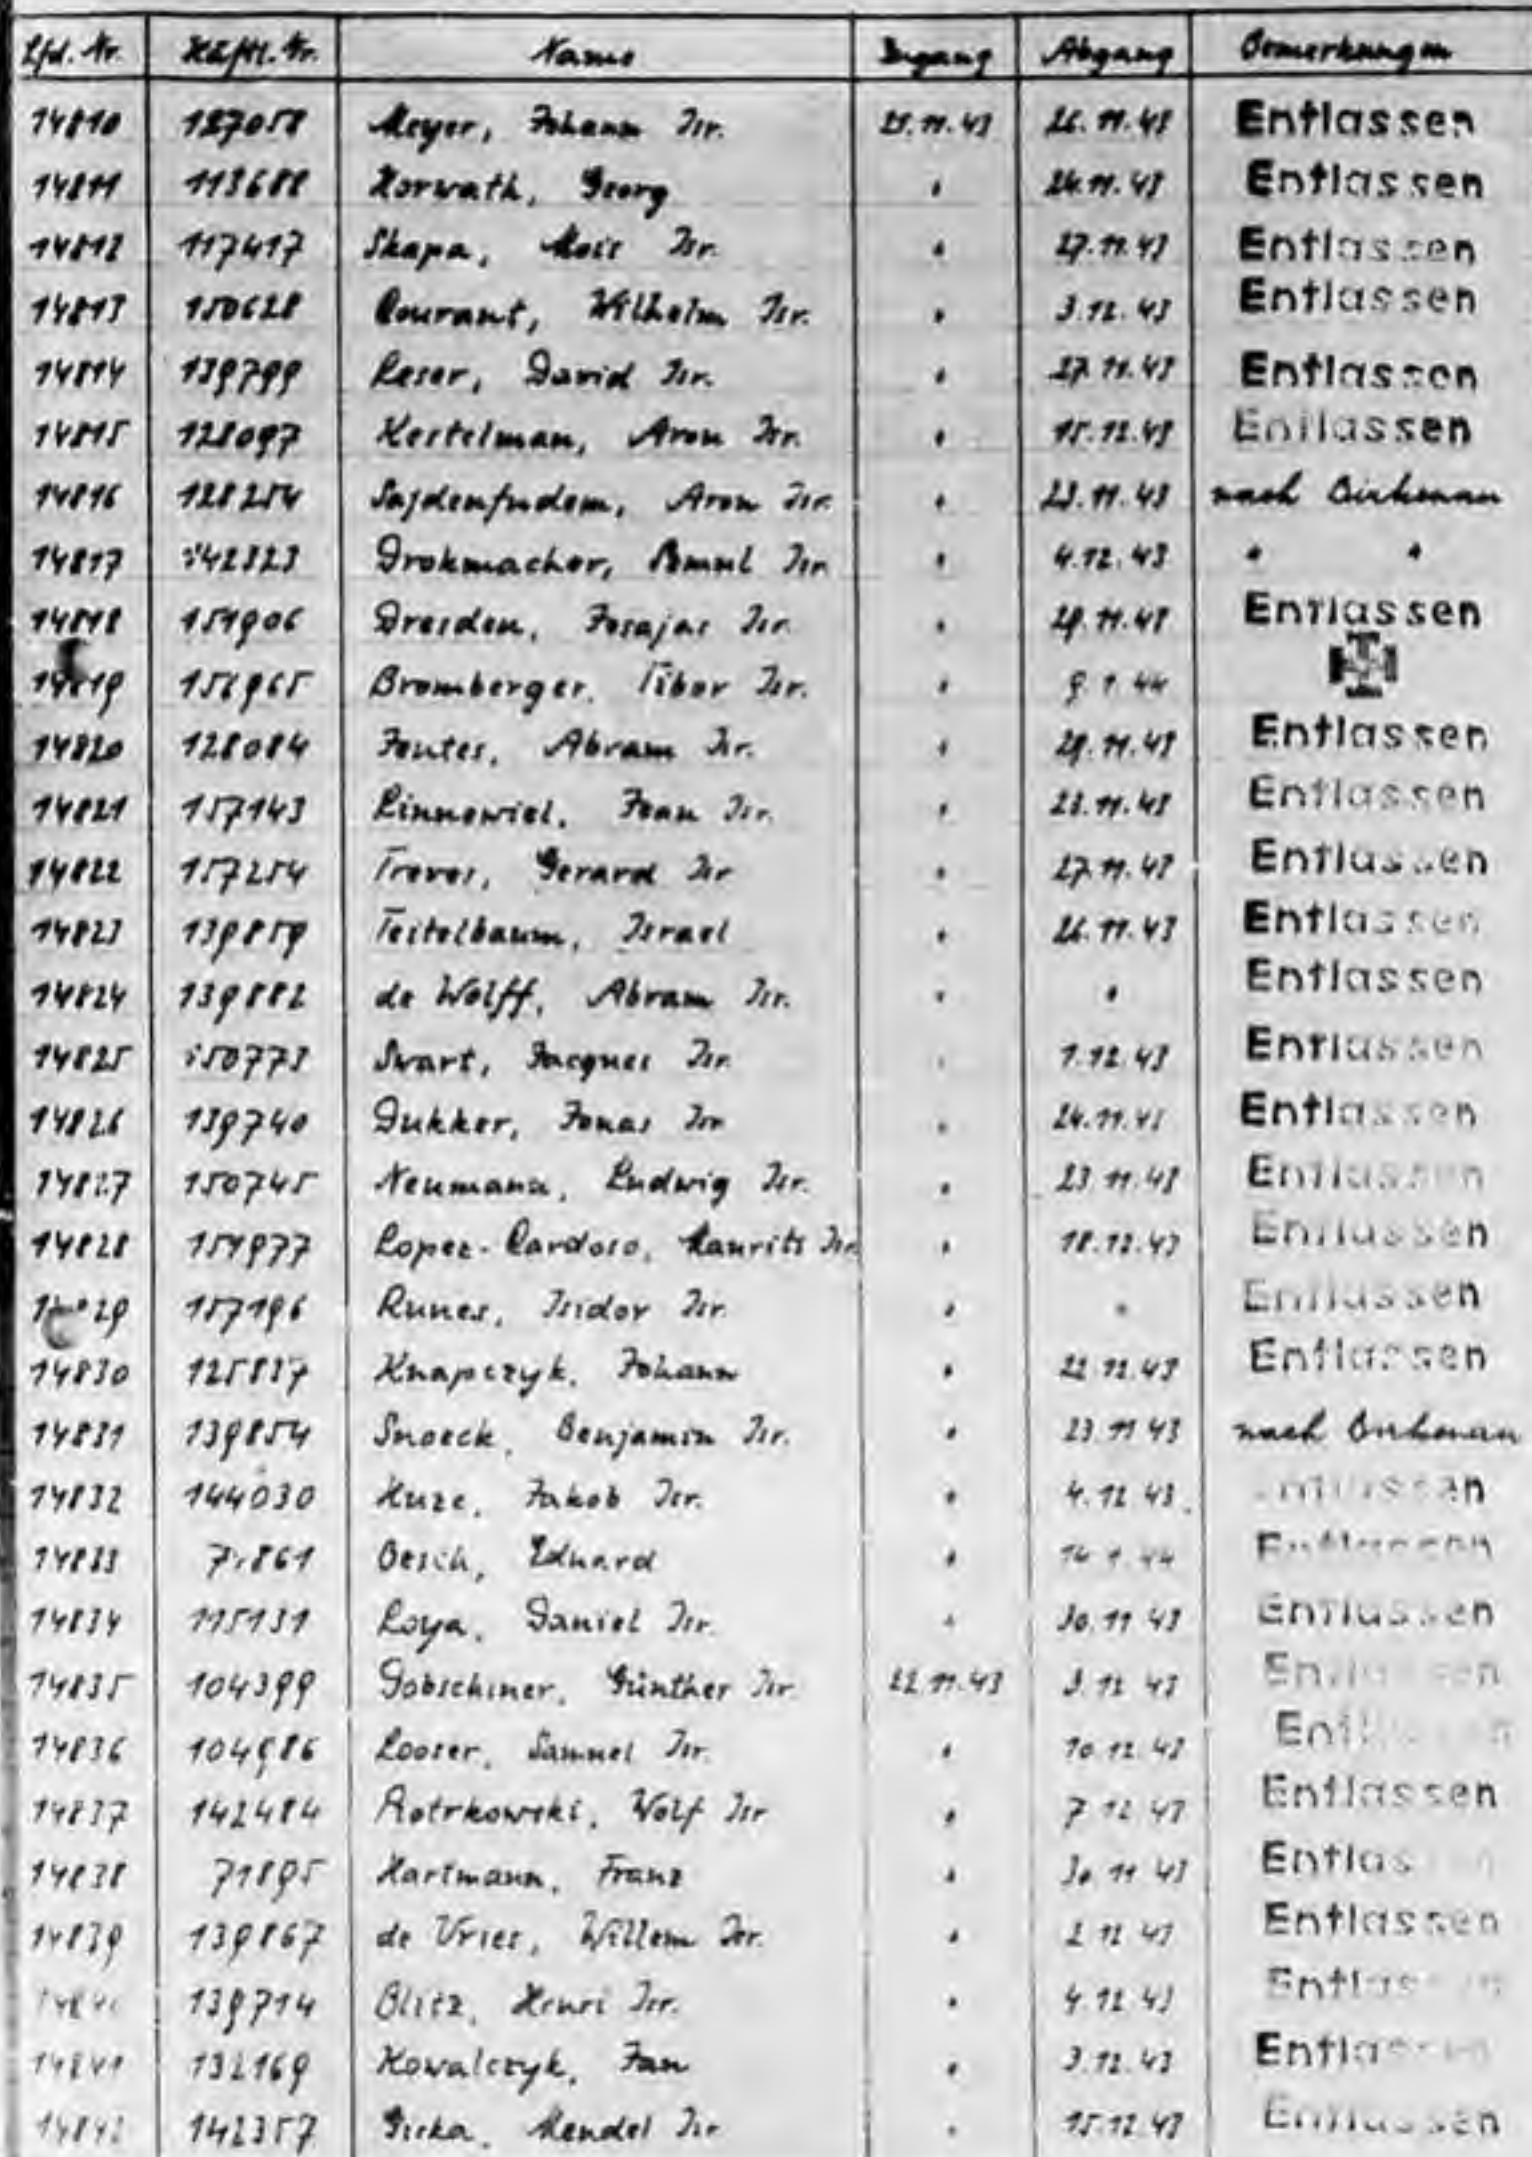 Lfd. Nr. Häftl. Nr. Name Zugang Abgang Bemerkungen
14810 127058 Meyer, Johann Isr. 21.11.43 26.11.43 Entlassen
14811 113688 Horwath, Georg " 24.11.43 Entlassen
14812 117417 Skapa, Isr. " 27.11.43 Entlassen
14813 150628 Courant, Wilhelm Isr. " 3.12.43 Entlassen
14814 139799 Leser, David Isr. " 27.11.43 Entlassen
14815 128097 Kestelman, Aron Isr. " 15.12.43 Entlassen
14816 128254 Sajdenfudem, Aron Isr. " 23.11.43 nach Birkenau
14817 142323 Drokmacher, Isr. " 4.12.43 " "
14818 151906 Dresden, Josajas Isr. " 29.11.43 Entlassen
14819 Bromberger, Tibor Isr. " 9.1.44
14820 128084 Jontes, Abram Isr. " 29.11.43 Entlassen
14821 157143 Linnewiel, Jean Isr. " 23.11.43 Entlassen
14822 157254 Treves, Gerard Isr " 27.11.43 Entlassen
14823 139859 Teitelbaum, Israel " 26.11.43 Entlassen
14824 139882 de Wolff, Abram Isr. " " Entlassen
14825 150773 Swart, Jacques Isr. " 1.12.43 Entlassen
14826 139740 Dukker, Jonas Isr " 24.11.43 Entlassen
14827 150745 Neumann, Ludwig Isr. " 23.11.43 Entlassen
14828 151977 Lopez-Cardoso, Maurits Isr. " 18.12.43 Entlassen
14829 157196 Runes, Isidor Isr. " " Entlassen
14830 125837 Knapczyk, Johann " 22.12.43 Entlassen
14831 139854 Snoeck, Benjamin Isr. " 23.11.43 nach Birkenau
14832 144030 Kuze, Jakob Isr. " 4.12.43 Entlassen
14833 Oesch, Eduard " 14.1.44 Entlassen
14834 115131 Loya, Daniel Isr. " 30.11.43 Entlassen
14835 104399 Gobschiner, Günther Isr 22.11.43 3.12.43 Entlassen
14836 104986 Looser, Samuel Isr. " 10.12.43 Entlassen
14837 142484 Piotrkowski, Wolf Isr " 7.12.43 Entlassen
14838 71895 Hartmann, Franz " 30.11.43 Entlassen
14839 139867 de Vries, Willem Isr. " 2.12.43 Entlassen
14840 139714 Blitz, Henri Isr. " 4.12.43 Entlassen
14841 132169 Kowalczyk, Jan " 3.12.43 Entlassen
14842 142357 Mendel Isr " 15.12.43 Entlassen